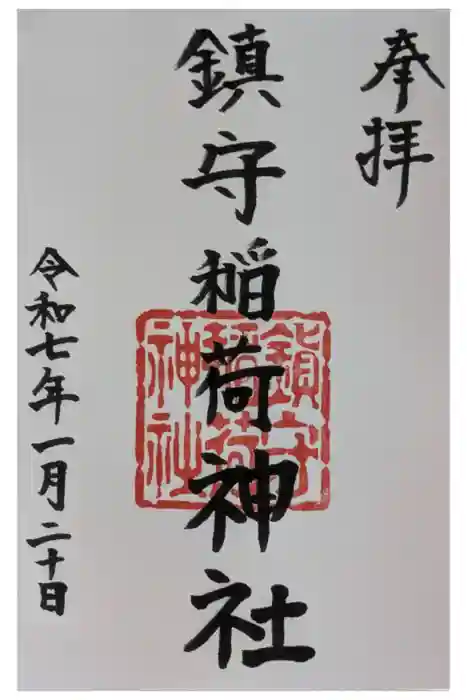 奉拝
鎮守稲荷神社
鎮守
稲荷
神社
令和七年一月二十日